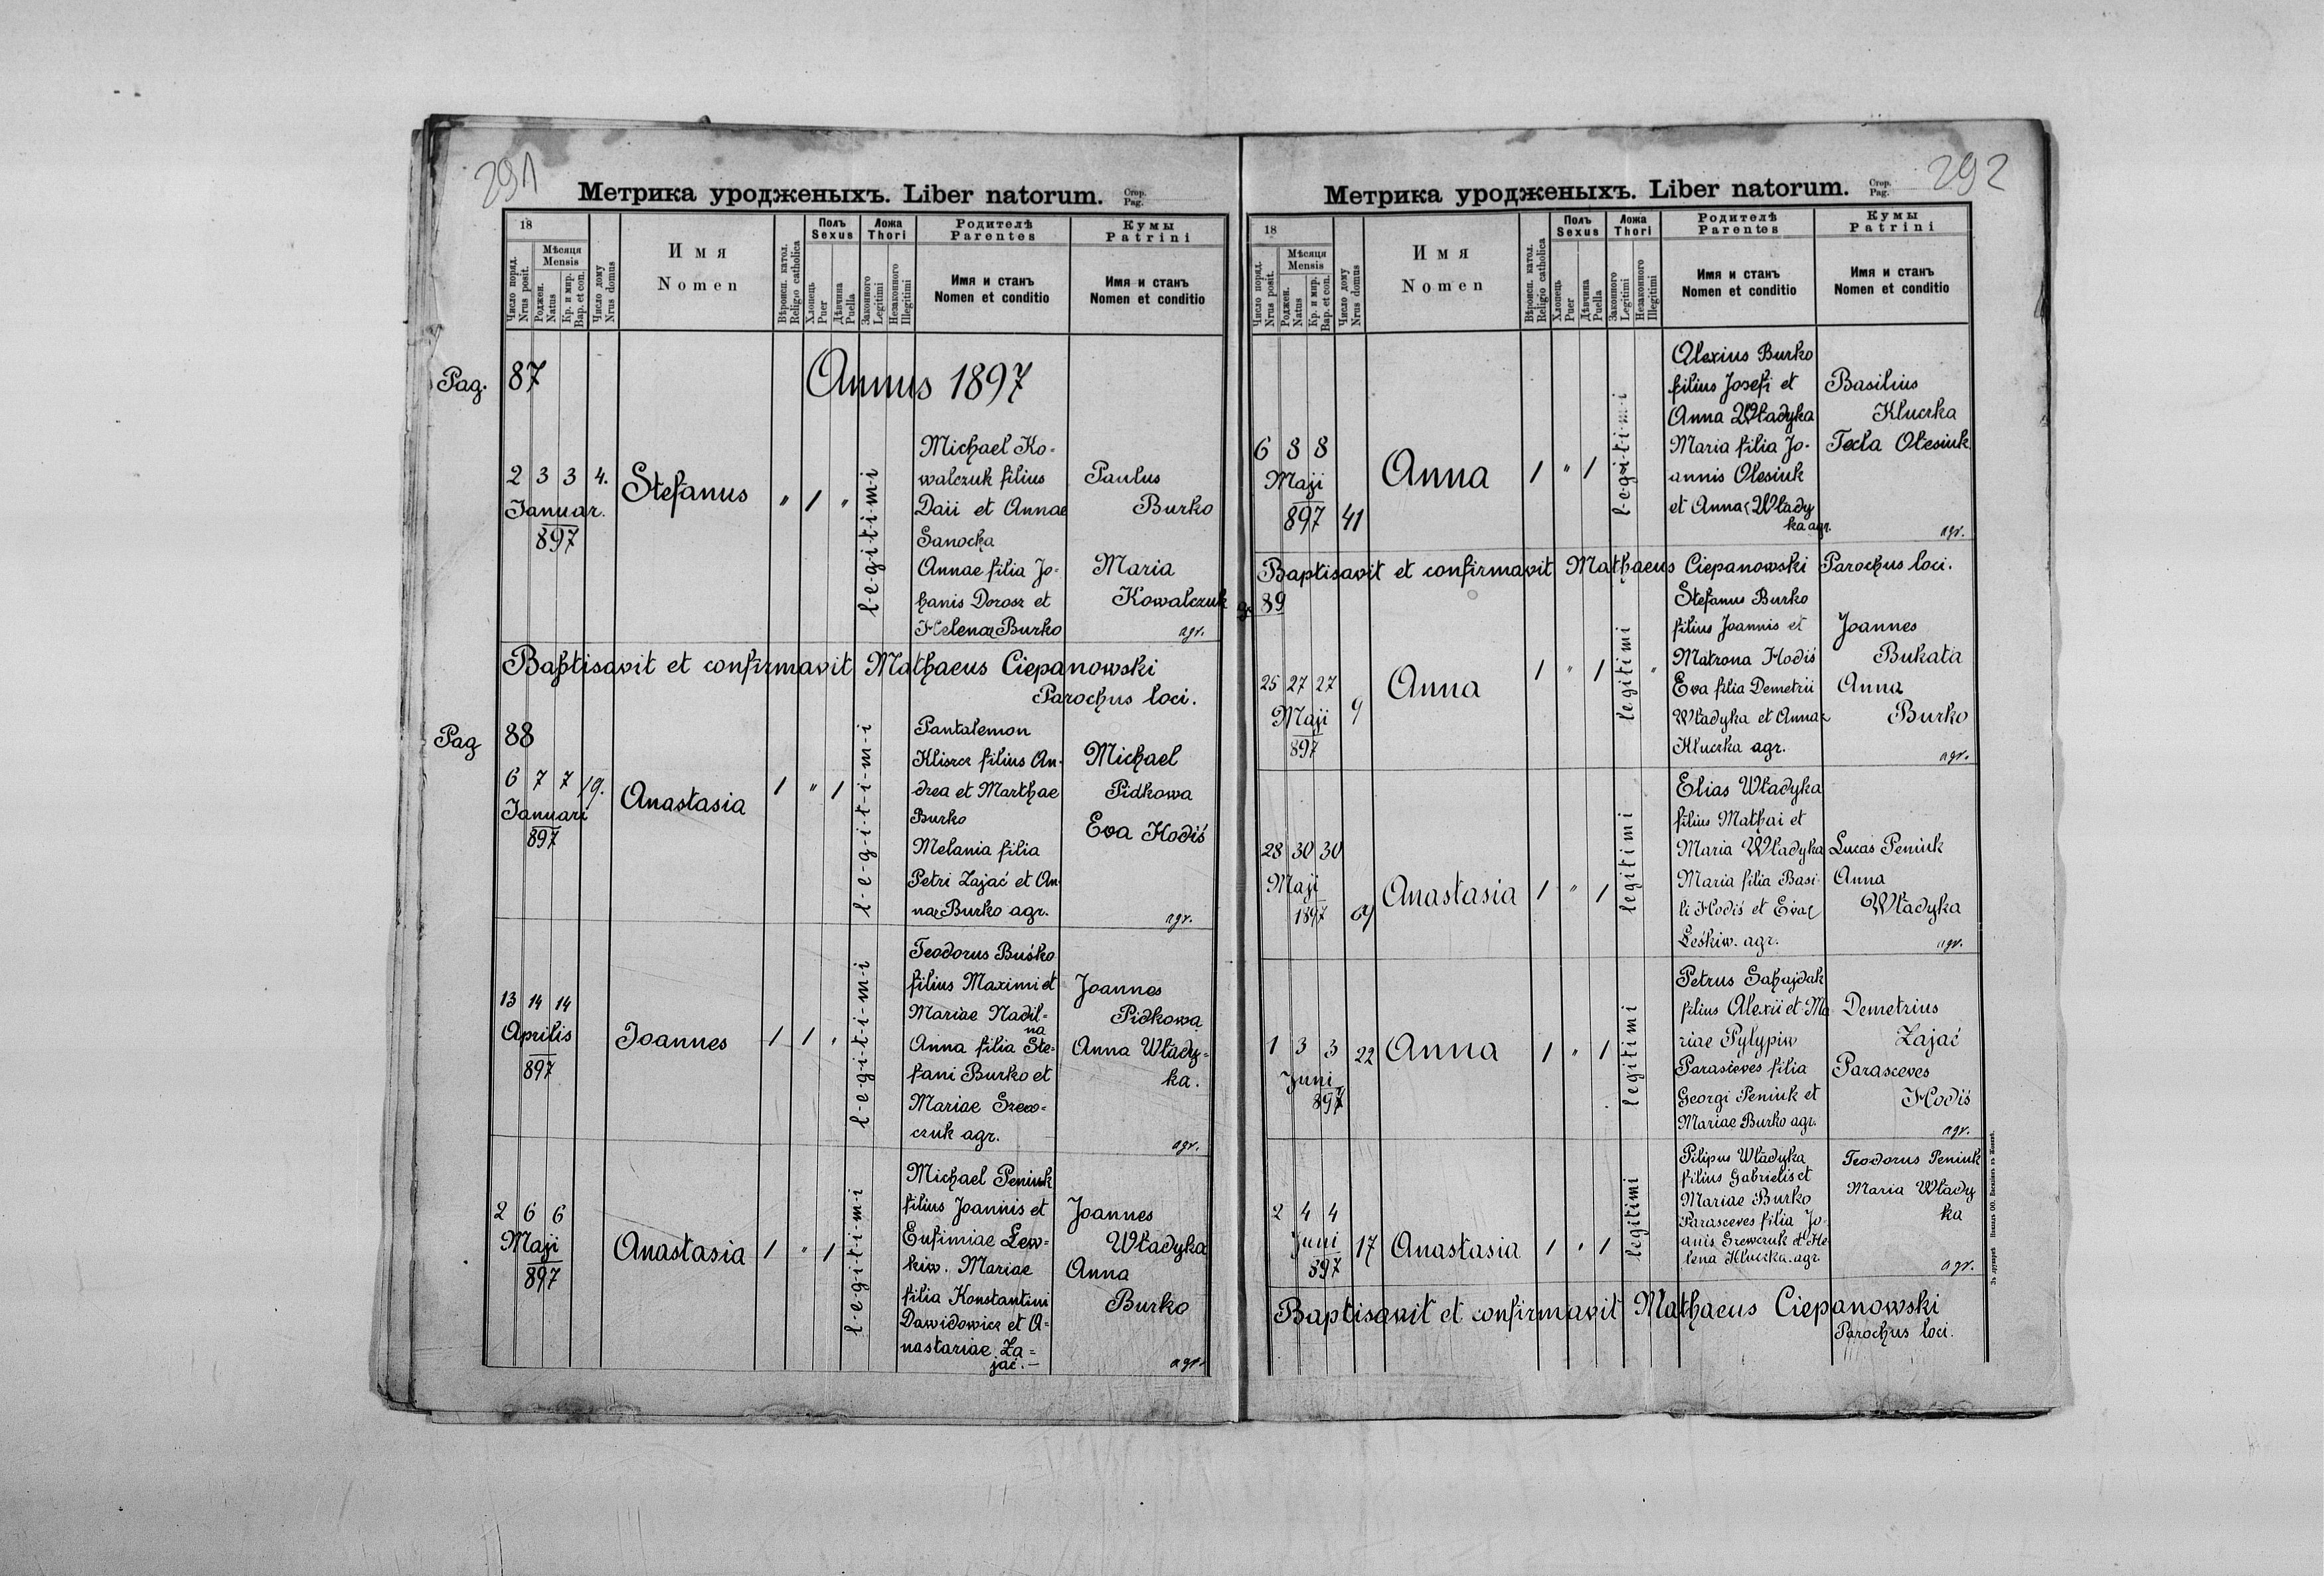 291
Метрика уродженыхъ. Liber natorum. Стор. Pag.
18
Число поряд. Nrus posit.
Мѣсяця Mensis
Роджен. Natus
Кр. и мир. Bap. et con.
Число дому Nrus domus
Имя
Nomen
Вѣроисп. катол. Religio catholica
Полъ Sexus
Хлопець Puer
Дѣвчина Puella
Ложа Thori
Законного Legitimi
Незаконного Illegitimi
Родителѣ
Parentes
Имя и станъ
Nomen et conditio
Кумы
Patrini
Имя и станъ
Nomen et conditio
Pag. 87
Annus 1897
2 3 3 4.
Januar.
897
Stefanus
" 1 "
l-e-g-i-t-i-m-i
Michael Ko-
walczuk filius
Daii et Annae
Sanocka
Annae filia Jo-
hanis Dorosz et
Helenae Burko
Paulus
Burko
Maria
Kowalczuk
agr.
Baptisavit et confirmavit Mathaeus Ciepanowski
Parochus loci.
Pag 88
6 7 7 19.
Januari
897
Anastasia
1 " 1
l-e-g-i-t-i-m-i
Pantalemon
Kliszcz filius An-
drea et Marthae
Burko
Melania filia
Petri Zajać et An-
nae Burko agr.
Michael
Pidkowa
Eva Hodiś
agr.
13 14 14
Aprilis
897
Joannes
1 1 "
l-e-g-i-t-i-m-i
Teodorus Buśko
filius Maximi et
Mariae Nadil-
na
Anna filia Ste-
fani Burko et
Mariae Szew-
czuk agr.
Joannes
Pidkowa
Anna Włady-
ka.
agr.
2 6 6
Maji
897
Anastasia
1 " 1
l-e-g-i-t-i-m-i
Michael Peniuk
filius Joannis et
Eufimiae Lew-
kiw. Mariae
filia Konstantini
Dawidowicz et A-
nastariae Za-
jać.-
Joannes
Władyka
Anna
Burko
agr.
292
Метрика уродженыхъ. Liber natorum. Стор. Pag.
18
Число поряд. Nrus posit.
Мѣсяця Mensis
Роджен. Natus
Кр. и мир. Bap. et con.
Число дому Nrus domus
Имя
Nomen
Вѣроисп. катол. Religio catholica
Полъ Sexus
Хлопець Puer
Дѣвчина Puella
Ложа Thori
Законного Legitimi
Незаконного Illegitimi
Родителѣ
Parentes
Имя и станъ
Nomen et conditio
Кумы
Patrini
Имя и станъ
Nomen et conditio
6 8 8
Maji
897 41
Anna
1 " 1
l-e-g-i-t-i-m-i
Alexius Burko
filius Josefi et
Anna Władyka
Maria filia Jo-
annis Olesiuk
et Annae Włady
ka agr.
Basilius
Kluczka
Tecla Olesiuk
agr.
Baptisavit et confirmavit Mathaeus Ciepanowski Parochus loci.
89
25 27 27
Maji 9
897
Anna
1 " 1 "
legitimi
Stefanus Burko
filius Joannis et
Matrona Hodiś
Eva filia Demetrii
Władyka et Annae
Kluczka agr.
Joannes
Bukata
Anna
Burko
agr.
28 30 30
Maji
1897 64
Anastasia
1 " 1
legitimi
Elias Władyka
filius Mathai et
Maria Władyka
Maria filia Basi-
li Hodiś et Evae
Leśkiw. agr.
Lucas Peniuk
Anna
Władyka
agr.
1 3 3 22
Juni
897
Anna
1 " 1
legitimi
Petrus Sahajdak
filius Alexii et Ma
riae Pylypiw
Parasceves filia
Georgi Peniuk et
Mariae Burko agr.
Demetrius
Zajać
Parasceves
Hodiś
agr.
2 4 4
Juni 17
897
Anastasia
1 " 1
legitimi
Pilipus Władyka
filius Gabrielis et
Mariae Burko
Parasceves filia Jo-
anis Szewczuk et He
lena Kluczka. agr.
Teodorus Peniuk
Maria Włady
ka
agr.
Baptisavit et confirmavit Mathaeus Ciepanowski
Parochus loci.